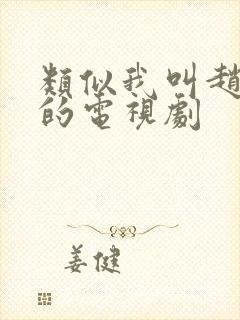 類似我叫趙
的電視劇
姜健